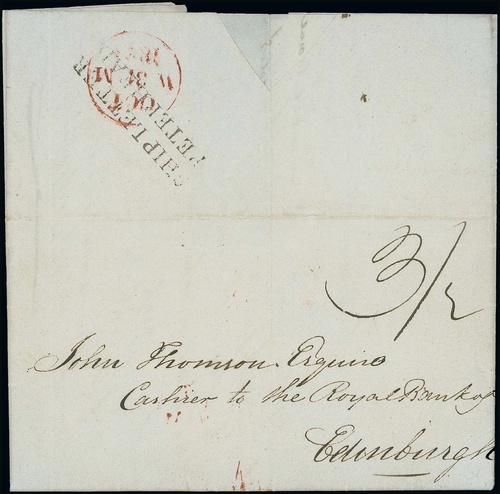 SHIP LETTER
PETERHEAD
OCT
M 31 M
3/2
John Thomson Esquire
Cashier to the Royal Bank of
Edinburgh